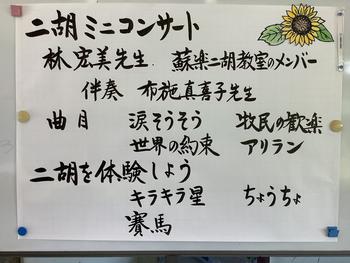 二胡ミニコンサート
林宏美先生 蘇楽二胡教室のメンバー
伴奏 布施真喜子先生
曲目 涙そうそう 牧民の歓楽
世界の約束 アリラン
二胡を体験しよう
キラキラ星 ちょうちょ
賽馬